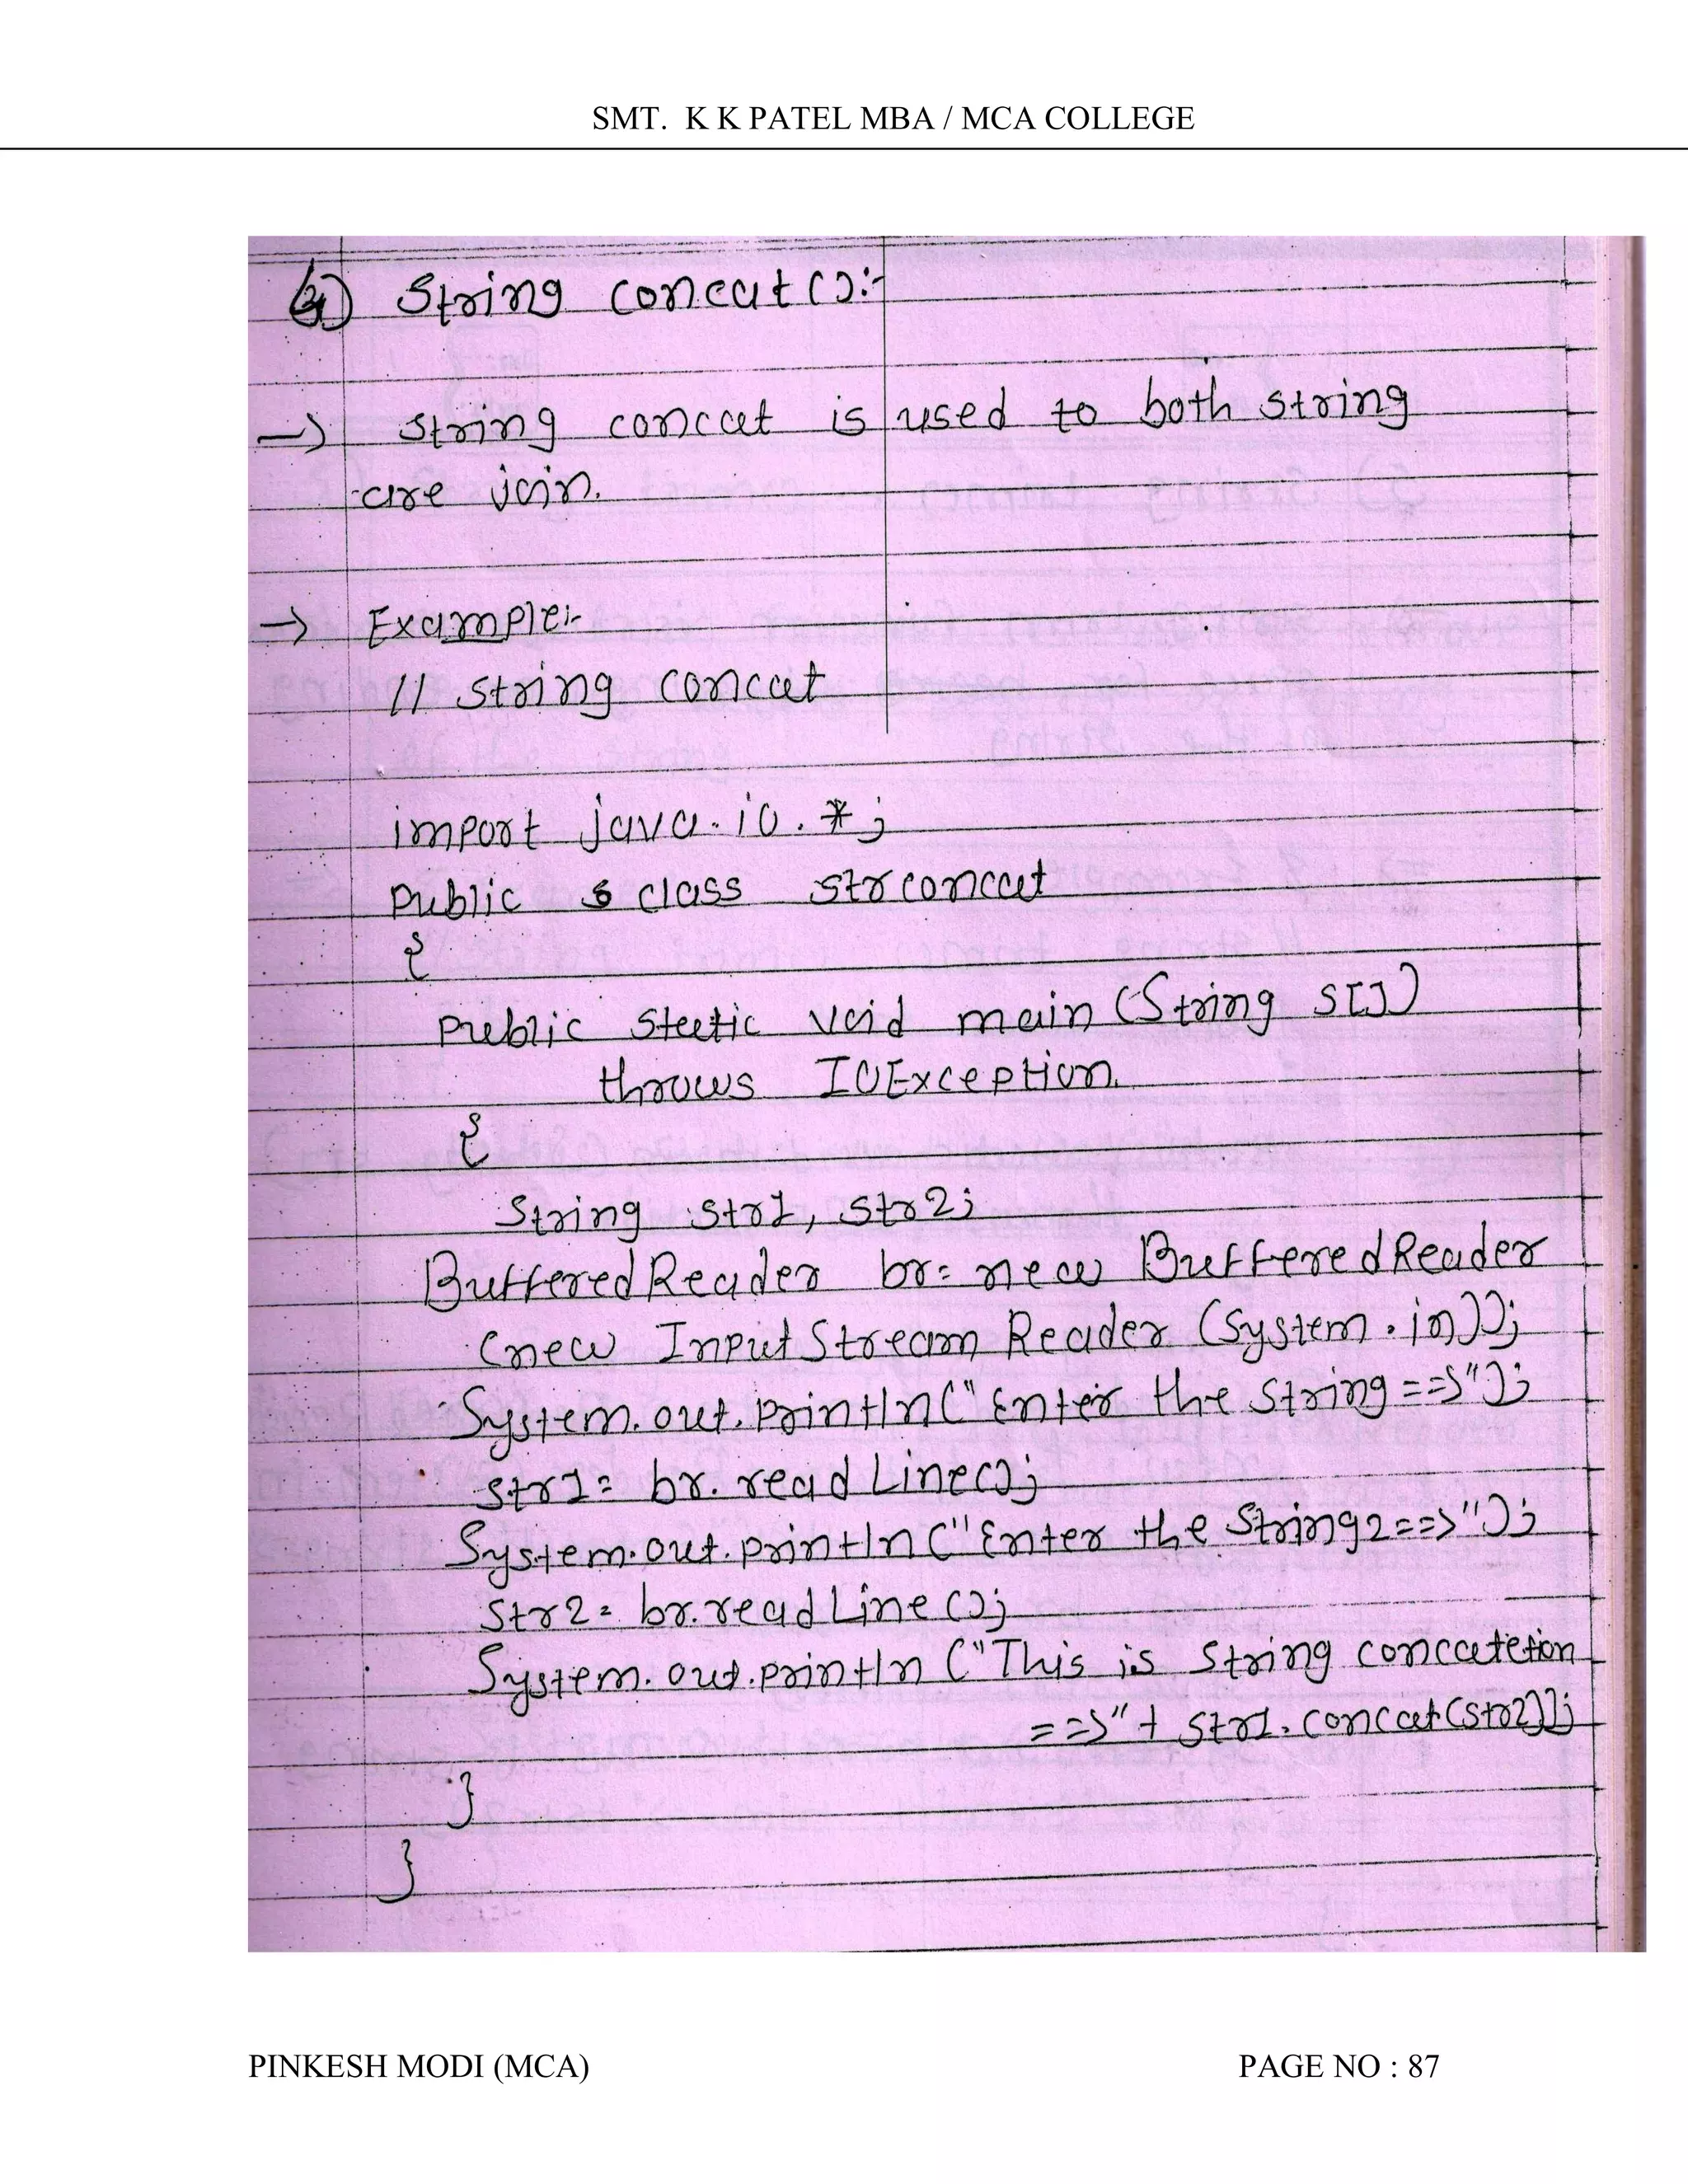 SMT. K K PATEL MBA / MCA COLLEGE
4) String concat():-
→ string concat is used to both string
are join.
→ Example:-
// string concat
import java.io.*;
public class strconcat
{
public static void main (String s[])
throws IOException
{
String str1, str2;
BufferedReader br= new BufferedReader
(new InputStreamReader (System.in));
System.out.println("Enter the string==>");
str1= br.readLine();
System.out.println("Enter the String2==>");
str2= br.readLine();
System.out.println ("This is string concatetion
==>"+ str1.concat(str2));
}
}
PINKESH MODI (MCA) PAGE NO : 87